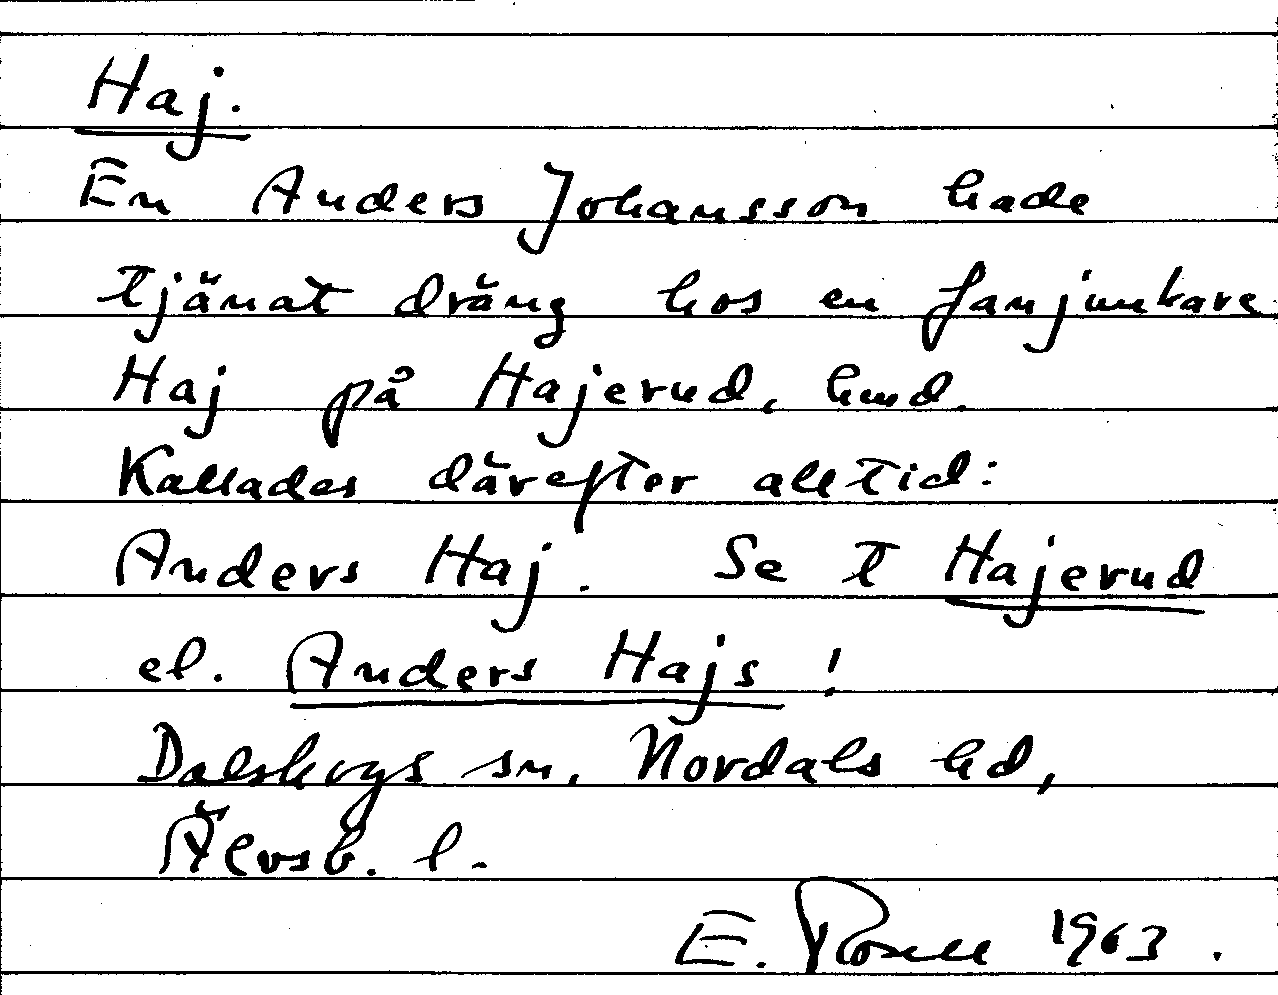 Haj.
En Anders Johansson hade
tjänat dräng hos en fanjunkare
Haj på Hajerud, hmd.
Kallades därefter alltid:
Anders Haj. Se t Hajerud
el. Anders Hajs!
Dalskogs sn, Nordals hd,
Älvsb. l.
E. Rosell 1963.